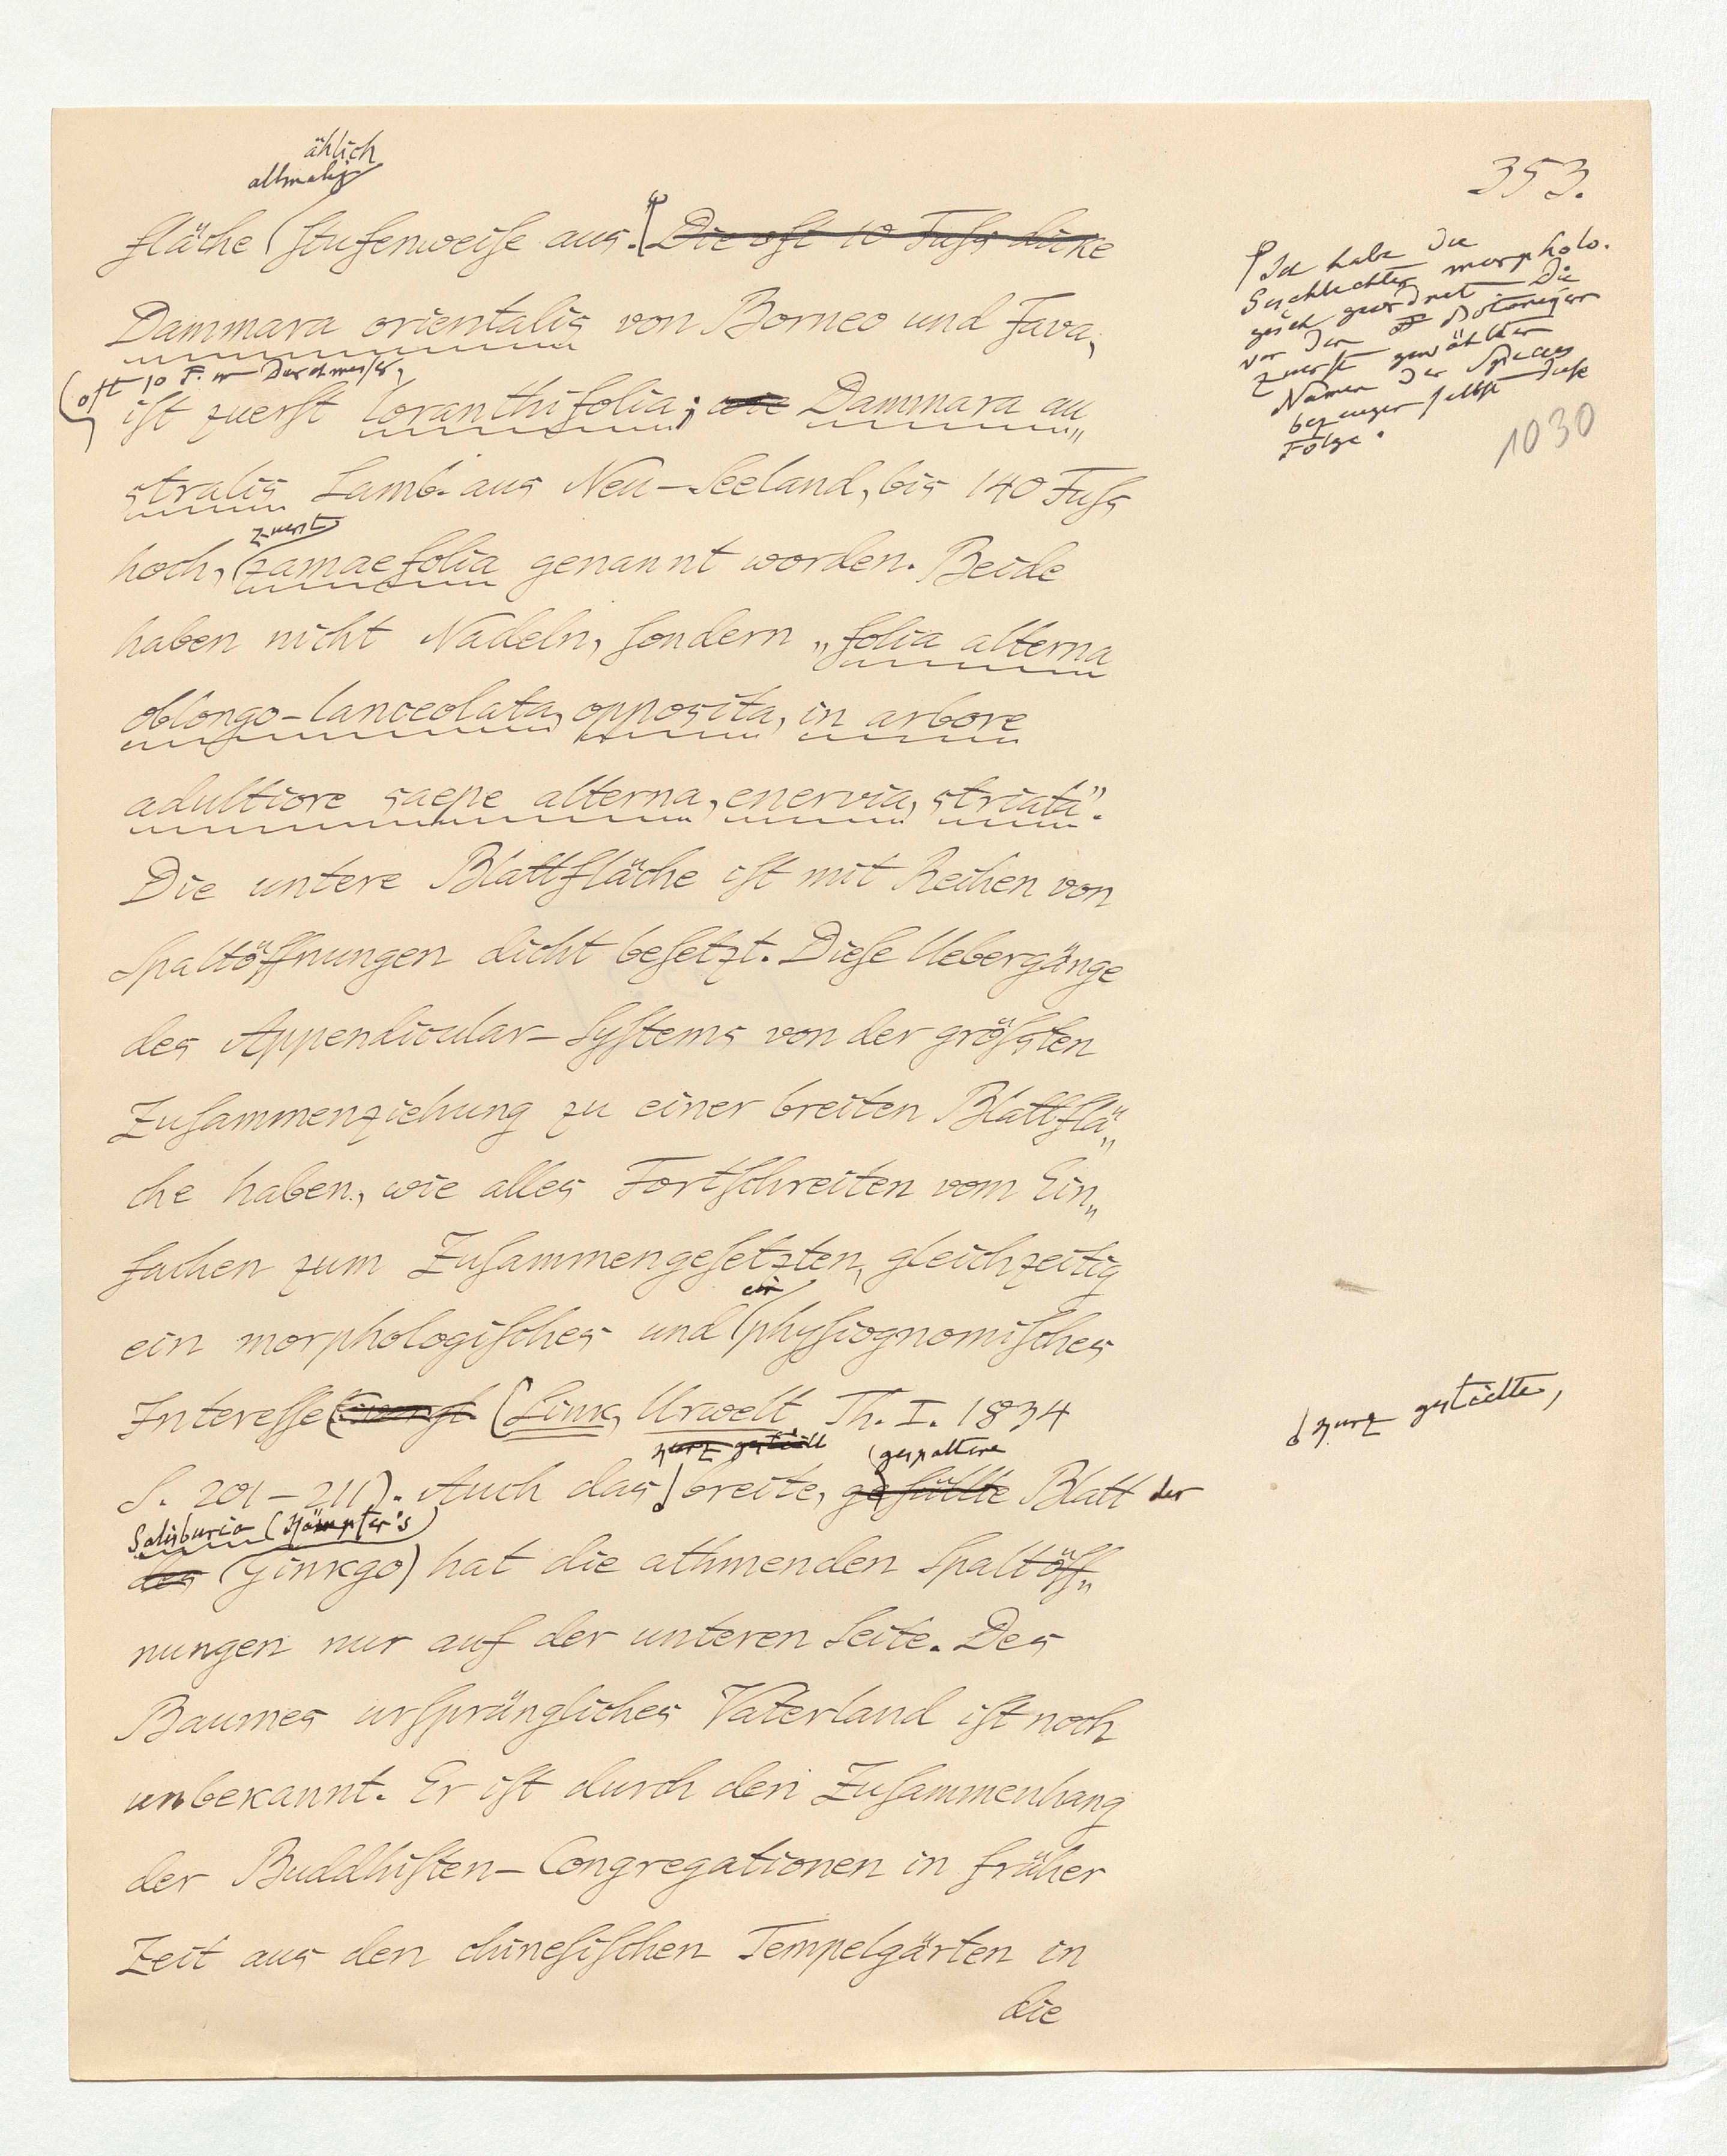 353.
ählich
allmahlig
fläche stufenweise aus. Die oft 10 Fuss dicke
Dammara orientalis von Borneo und Java,
(oft 10 F. im Durchmesser,
ist zuerst loranthifolia; wie Dammara au„
stralis Lamb. aus Neu-Seeland, bis 140 Fuss
zuerst
hoch, zamaefolia genannt worden. Beide
haben nicht Nadeln, sondern „folia alterna
oblongo-lanceolata, opposita, in arbore
adultiore saepe alterna, enervia, striata".
Die untere Blattfläche ist mit Reihen von
Spaltöffnungen dicht besetzt. Diese Uebergänge
des Appendicular-Systems von der grössten
Zusammenziehung zu einer breiten Blattflä„
che haben, wie alles Fortschreiten vom Ein„
fachen zum Zusammengesetzten, gleichzeitig
ein
ein morphologisches und physiognomisches
Interesse (Link, Urwelt Th. I. 1834
kurz gestielt gespaltene
S. 201-211). Auch das breite, Blatt der
Salisburia (Kämpfer's
des Ginkgo) hat die athmenden Spaltöff„
nungen nur auf der unteren Seite. Des
Baumes ursprüngliches Vaterland ist noch
unbekannt. Er ist durch den Zusammenhang
der Buddhisten-Congregationen in früher
Zeit aus den chinesischen Tempelgärten in
die
Ich habe die
Geschlechter morpholo.
gisch geordnet Die
von den Botanigern
zuerst gewählten
Namen der Species
bezeugen selbst diese
Folge.
1030
kurz gestielte,